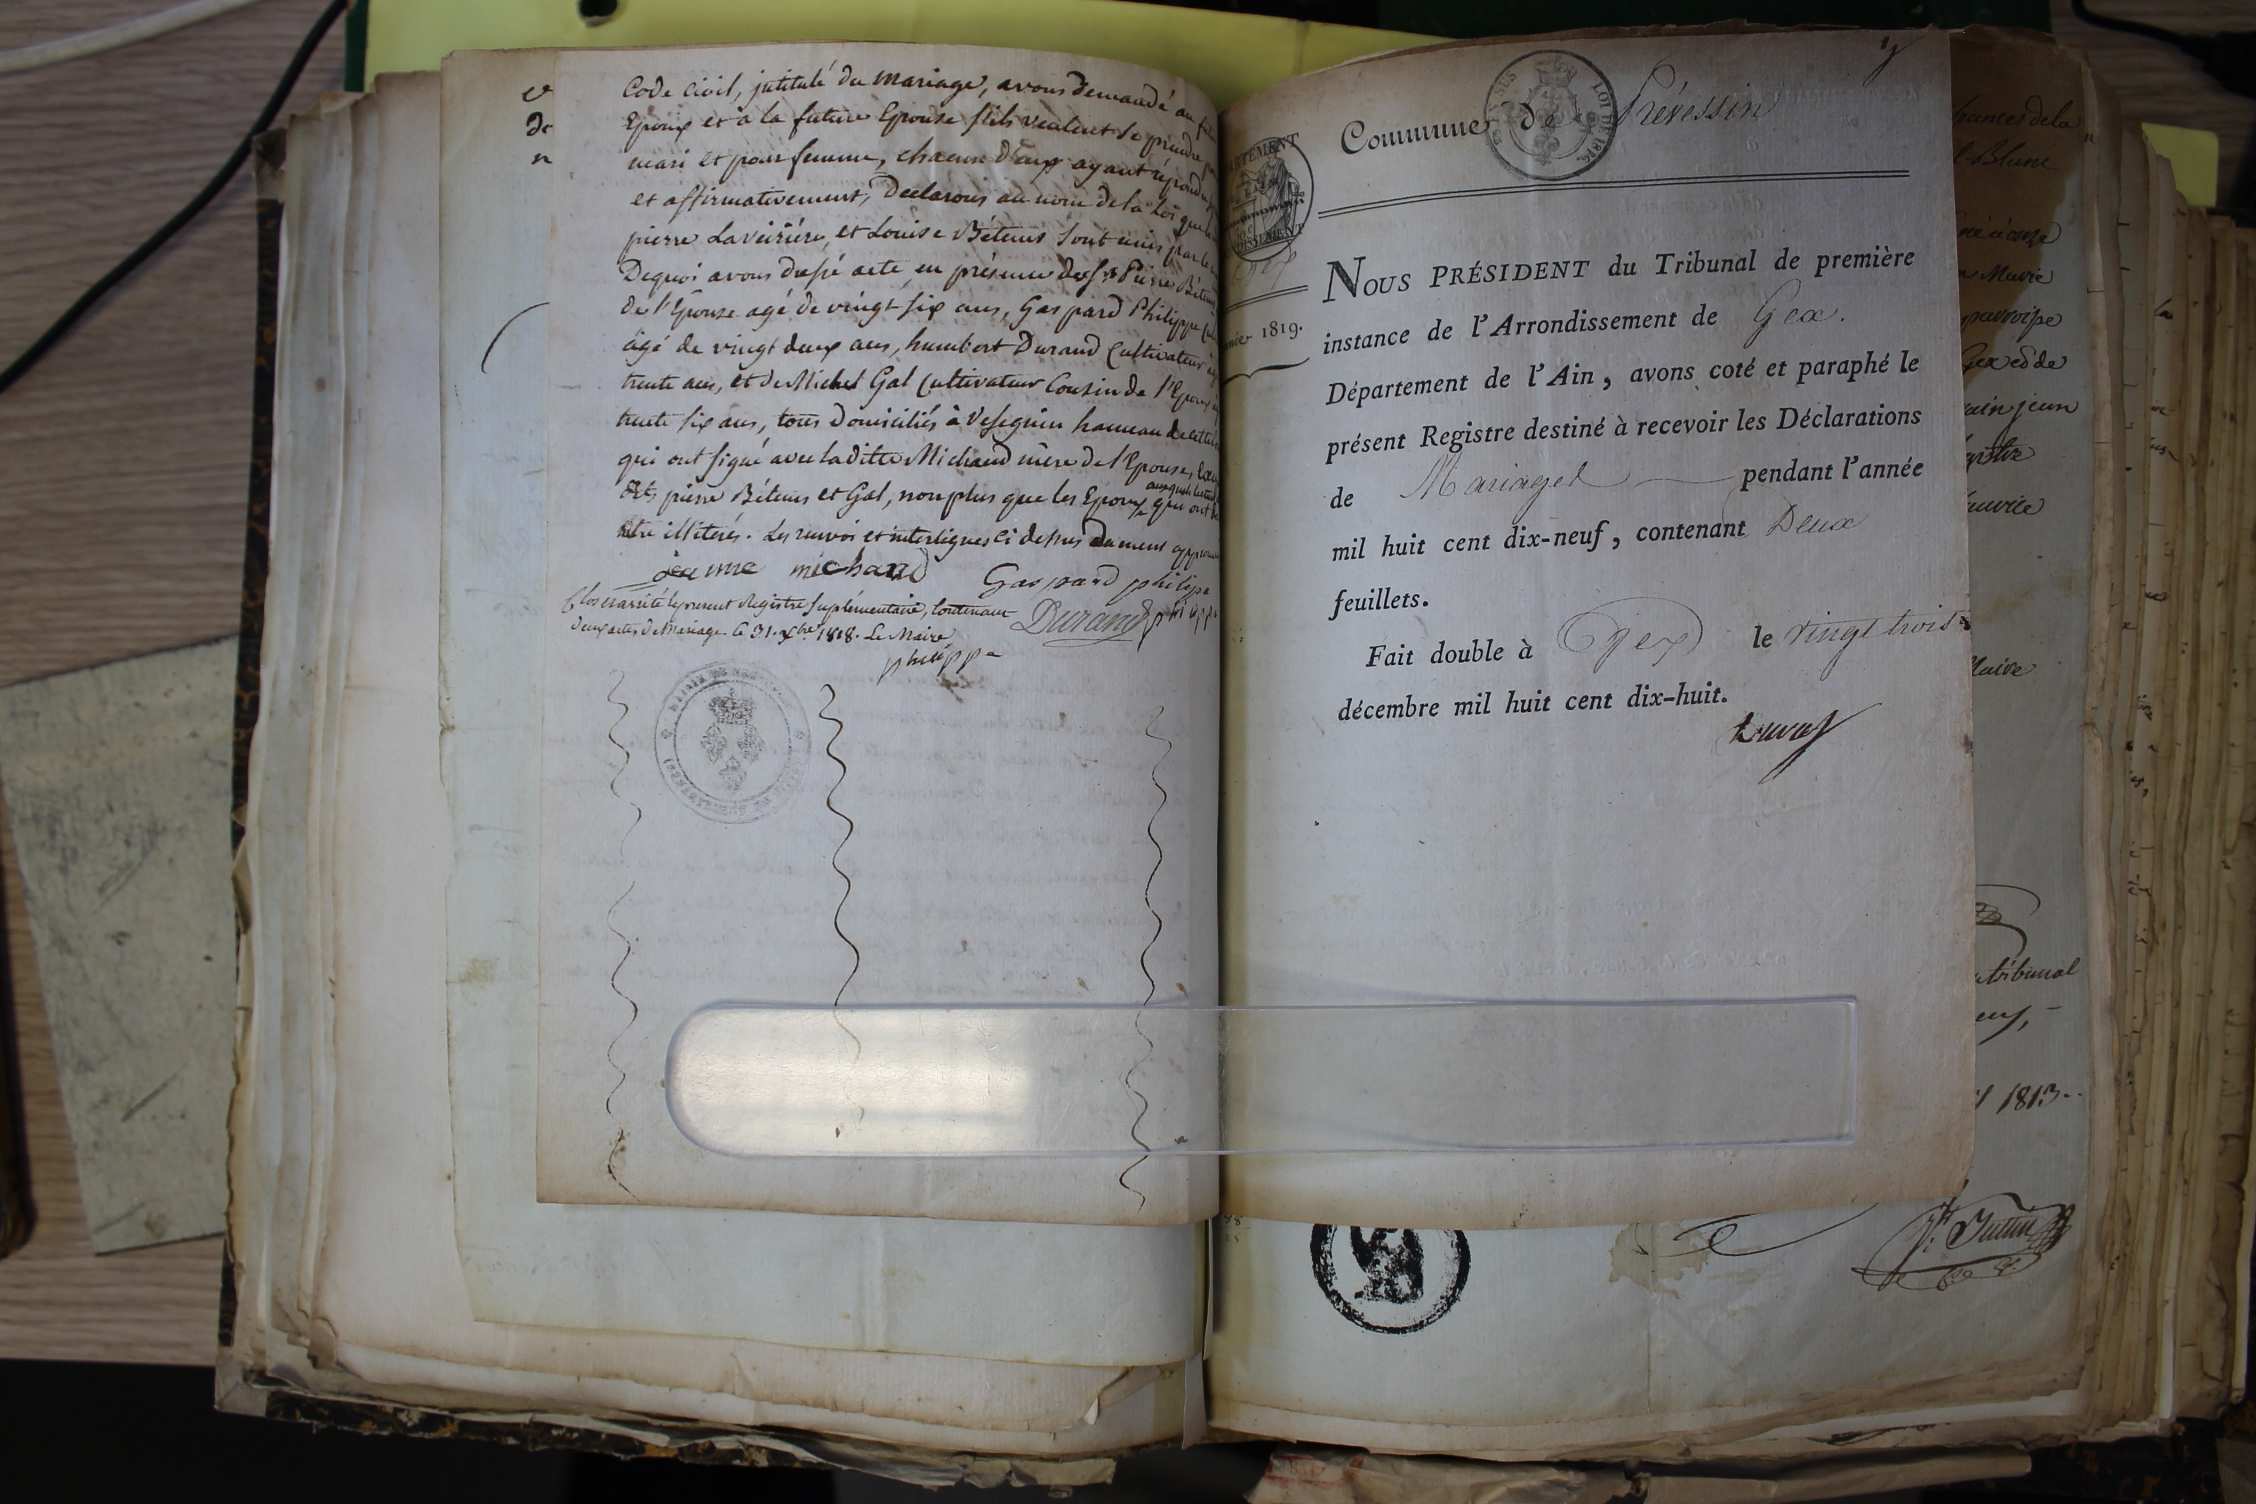 Code Civil, intitulé du mariage, avons demandé au
Epoux et à la future Epouse s'ils veulent se prendre
mari et pour femme, chacun d'eux ayant répondu
et affirmativement, Declarons au nom de la Loi que
pierre Laverrière, et Louise Bétems sont unis par le
Dequoi avons dressé acte, en présence de Pierre Bétems
de l'Epouse agé de vingt six ans, Gaspard Philippe
âgé de vingt deux ans, humbert Durand Cultivateur
trente ans, et de Michel Gal Cultivateur Cousin de l'Epoux
trente six ans, tous Domiciliés à Vesegnin hameau de cette
qui ont signé avec la ditte Michaud mère de l'Epouse,
pierre Bétems et Gal, non plus que les Epoux auxquels qui ont
être illitérés. Les renvois et interlignes ci dessus dument
michaud
Gaspard philipe
Clos et arrêté le present Registre Suplémentaire, contenant
Durand philippe
deux actes de Mariage. Le 31. Xbre 1818. Le Maire
philippe
Commune de Prévessin
ARTEMENT
LOI DE
Gex
1819.
NOUS PRÉSIDENT du Tribunal de première
instance de l'Arrondissement de Gex.
Département de l'Ain, avons coté et paraphé le
présent Registre destiné à recevoir les Déclarations
de Mariages pendant l'année
mil huit cent dix-neuf, contenant Deux
feuillets.
Fait double à Gex le vingt trois
décembre mil huit cent dix-huit.
de la
Blanc
Marie
Gex et de
jean
Maire
tribunal
1813